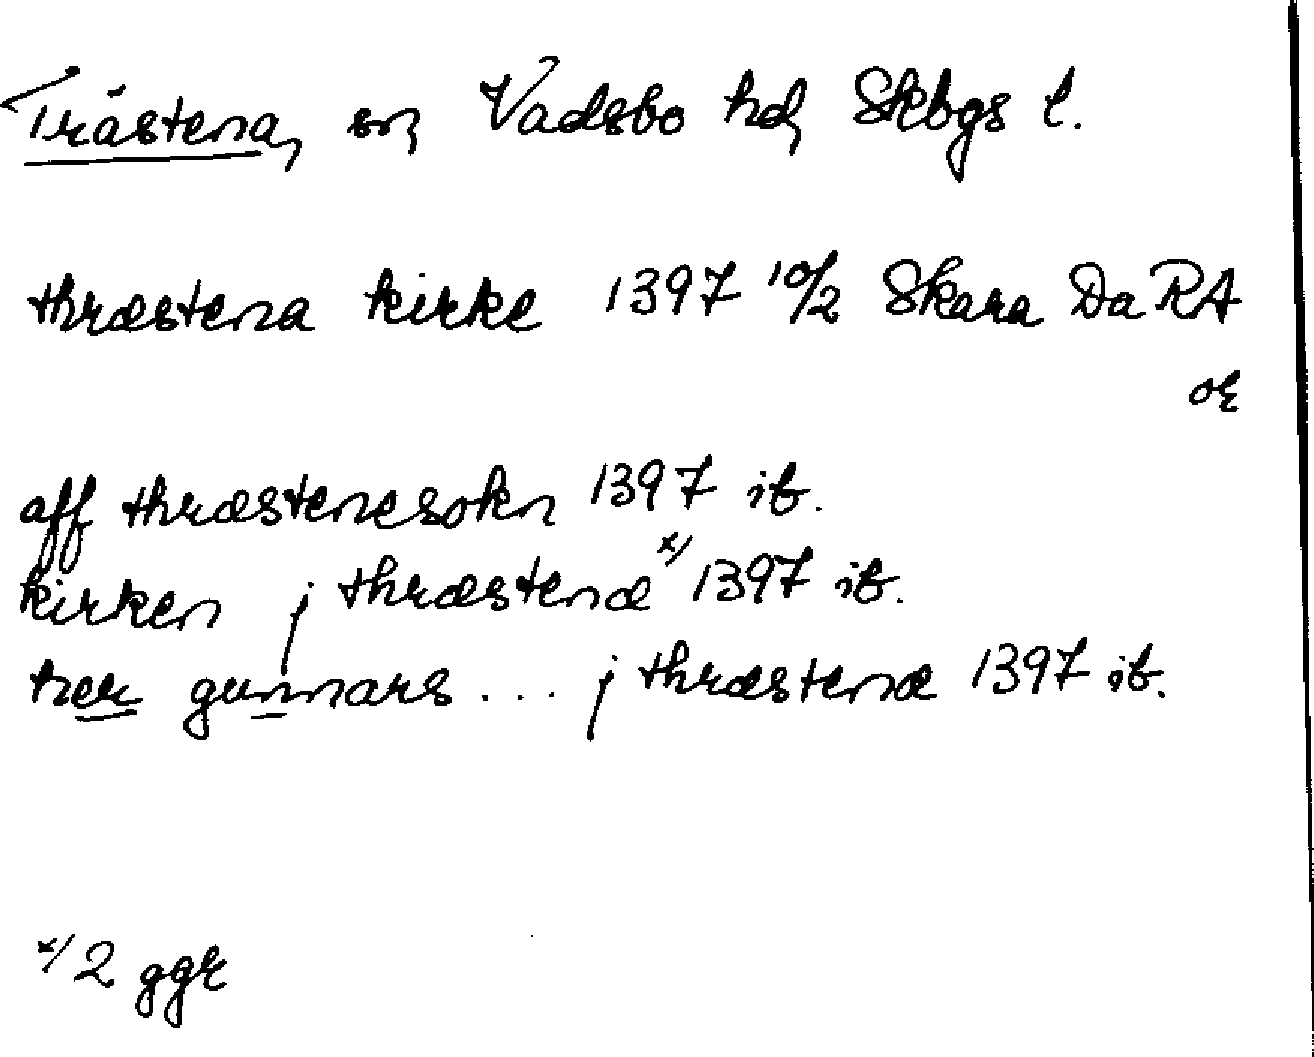 Trästena, sn, Vadsbo hd, Skbgs l.
thræstena kirke 1397 10/2 Skara Da RA
or
aff thræstenesokn 1397 ib.
kirken j thræstenæ x/ 1397 ib.
her gunnars ... j thræstenæ 1397 ib.
x/ 2 ggr